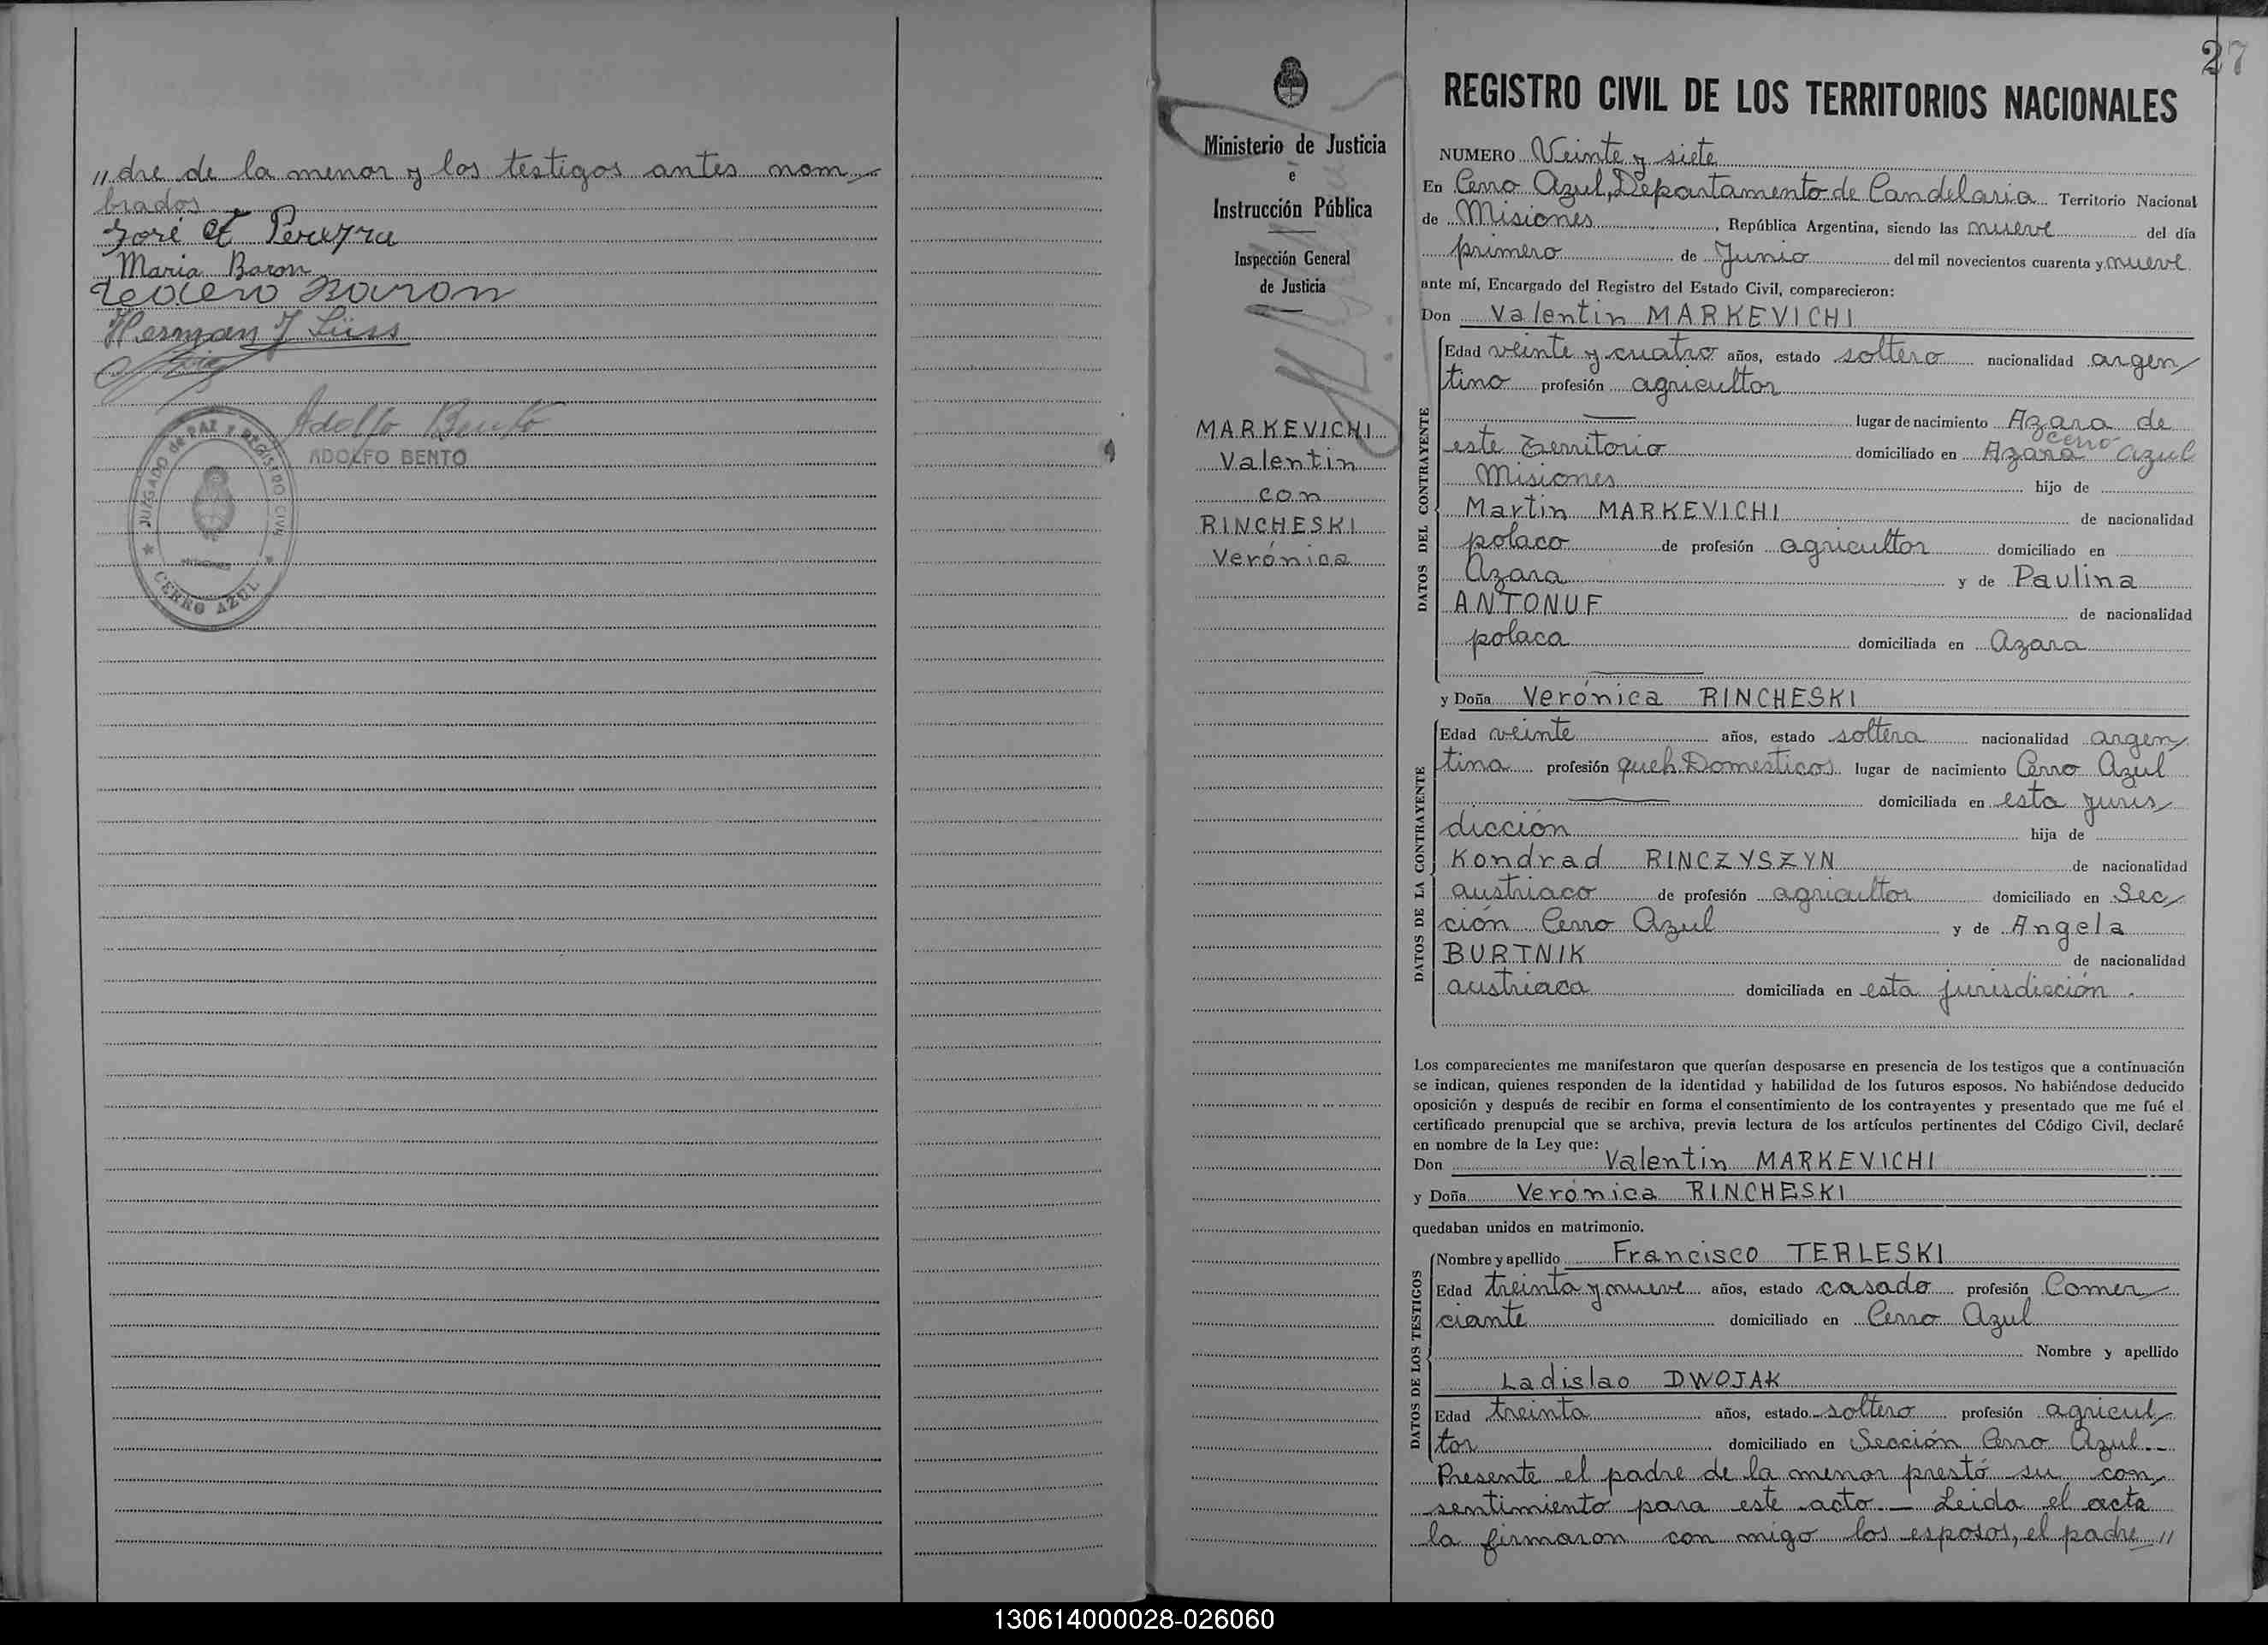 // dre de la menor y los testigos antes nom-
brados
José A Pereyra
Maria Baron
Teodero Baron
Herman J Süss
Adolfo Bento
ADOLFO BENTO
JUZGADO de PAZ Y REGISTRO CIVIL
MISIONES
CERRO AZUL
27
Ministerio de Justicia
e
Instrucción Pública
Inspección General
de Justicia
MARKEVICHI
Valentin
con
RINCHESKI
Verónica
REGISTRO CIVIL DE LOS TERRITORIOS NACIONALES
NUMERO Veinte y siete
En Cerro Azul, Departamento de Candelaria Territorio Nacional
de Misiones, República Argentina, siendo las nueve del día
primero de Junio del mil novecientos cuarenta y nueve
ante mí, Encargado del Registro del Estado Civil, comparecieron:
Don Valentin MARKEVICHI
DATOS DEL CONTRAYENTE
Edad veinte y cuatro años, estado soltero nacionalidad argen-
tino profesión agricultor
lugar de nacimiento Azara de
este Territorio domiciliado en Azara cerro azul
Misiones hijo de
Martin MARKEVICHI de nacionalidad
polaco de profesión agricultor domiciliado en
Azara y de Paulina
ANTONUF de nacionalidad
polaca domiciliada en Azara
y Doña Verónica RINCHESKI
DATOS DE LA CONTRAYENTE
Edad veinte años, estado soltera nacionalidad argen-
tina profesión queh. Domesticos lugar de nacimiento Cerro Azul
domiciliada en esta juris-
dicción hija de
Kondrad RINCZYSZYN de nacionalidad
austriaco de profesión agricultor domiciliado en Sec-
ción Cerro Azul y de Angela
BURTNIK de nacionalidad
austriaca domiciliada en esta jurisdicción.
Los comparecientes me manifestaron que querían desposarse en presencia de los testigos que a continuación
se indican, quienes responden de la identidad y habilidad de los futuros esposos. No habiéndose deducido
oposición y después de recibir en forma el consentimiento de los contrayentes y presentado que me fué el
certificado prenupcial que se archiva, previa lectura de los artículos pertinentes del Código Civil, declaré
en nombre de la Ley que:
Don Valentin MARKEVICHI
y Doña Verónica RINCHESKI
quedaban unidos en matrimonio.
DATOS DE LOS TESTIGOS
Nombre y apellido Francisco TERLESKI
Edad treinta y nueve años, estado casado profesión Comer-
ciante domiciliado en Cerro Azul
Nombre y apellido
Ladislao DWOJAK
Edad treinta años, estado soltero profesión agricul-
tor domiciliado en Sección Cerro Azul.-
Presente el padre de la menor prestó su con-
sentimiento para este acto.- Leida el acta
la firmaron con migo los esposos, el padre //
130614000028-026060